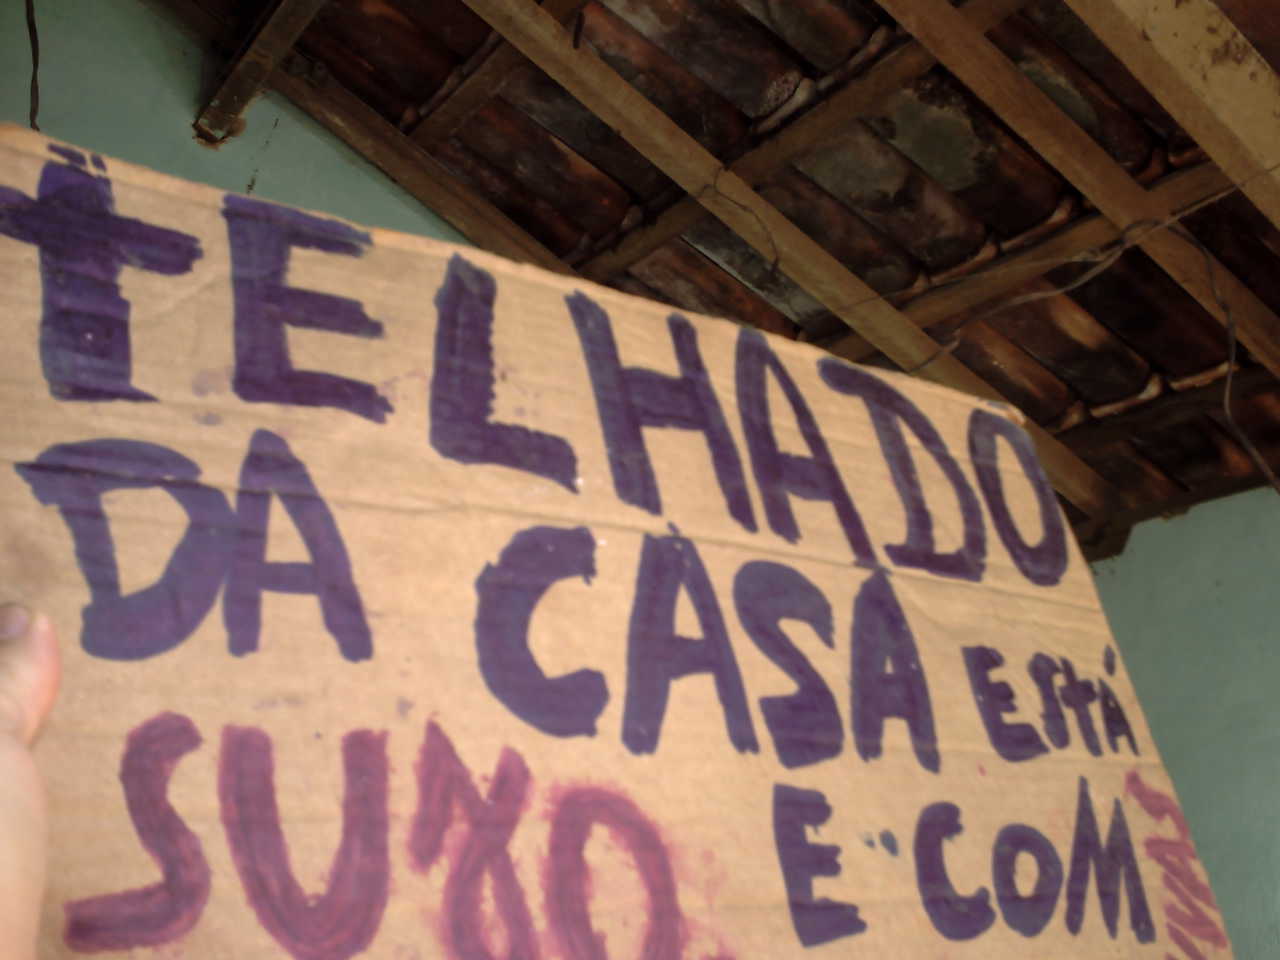 tELHADO
DA CASA EStÁ
SUXO E COM